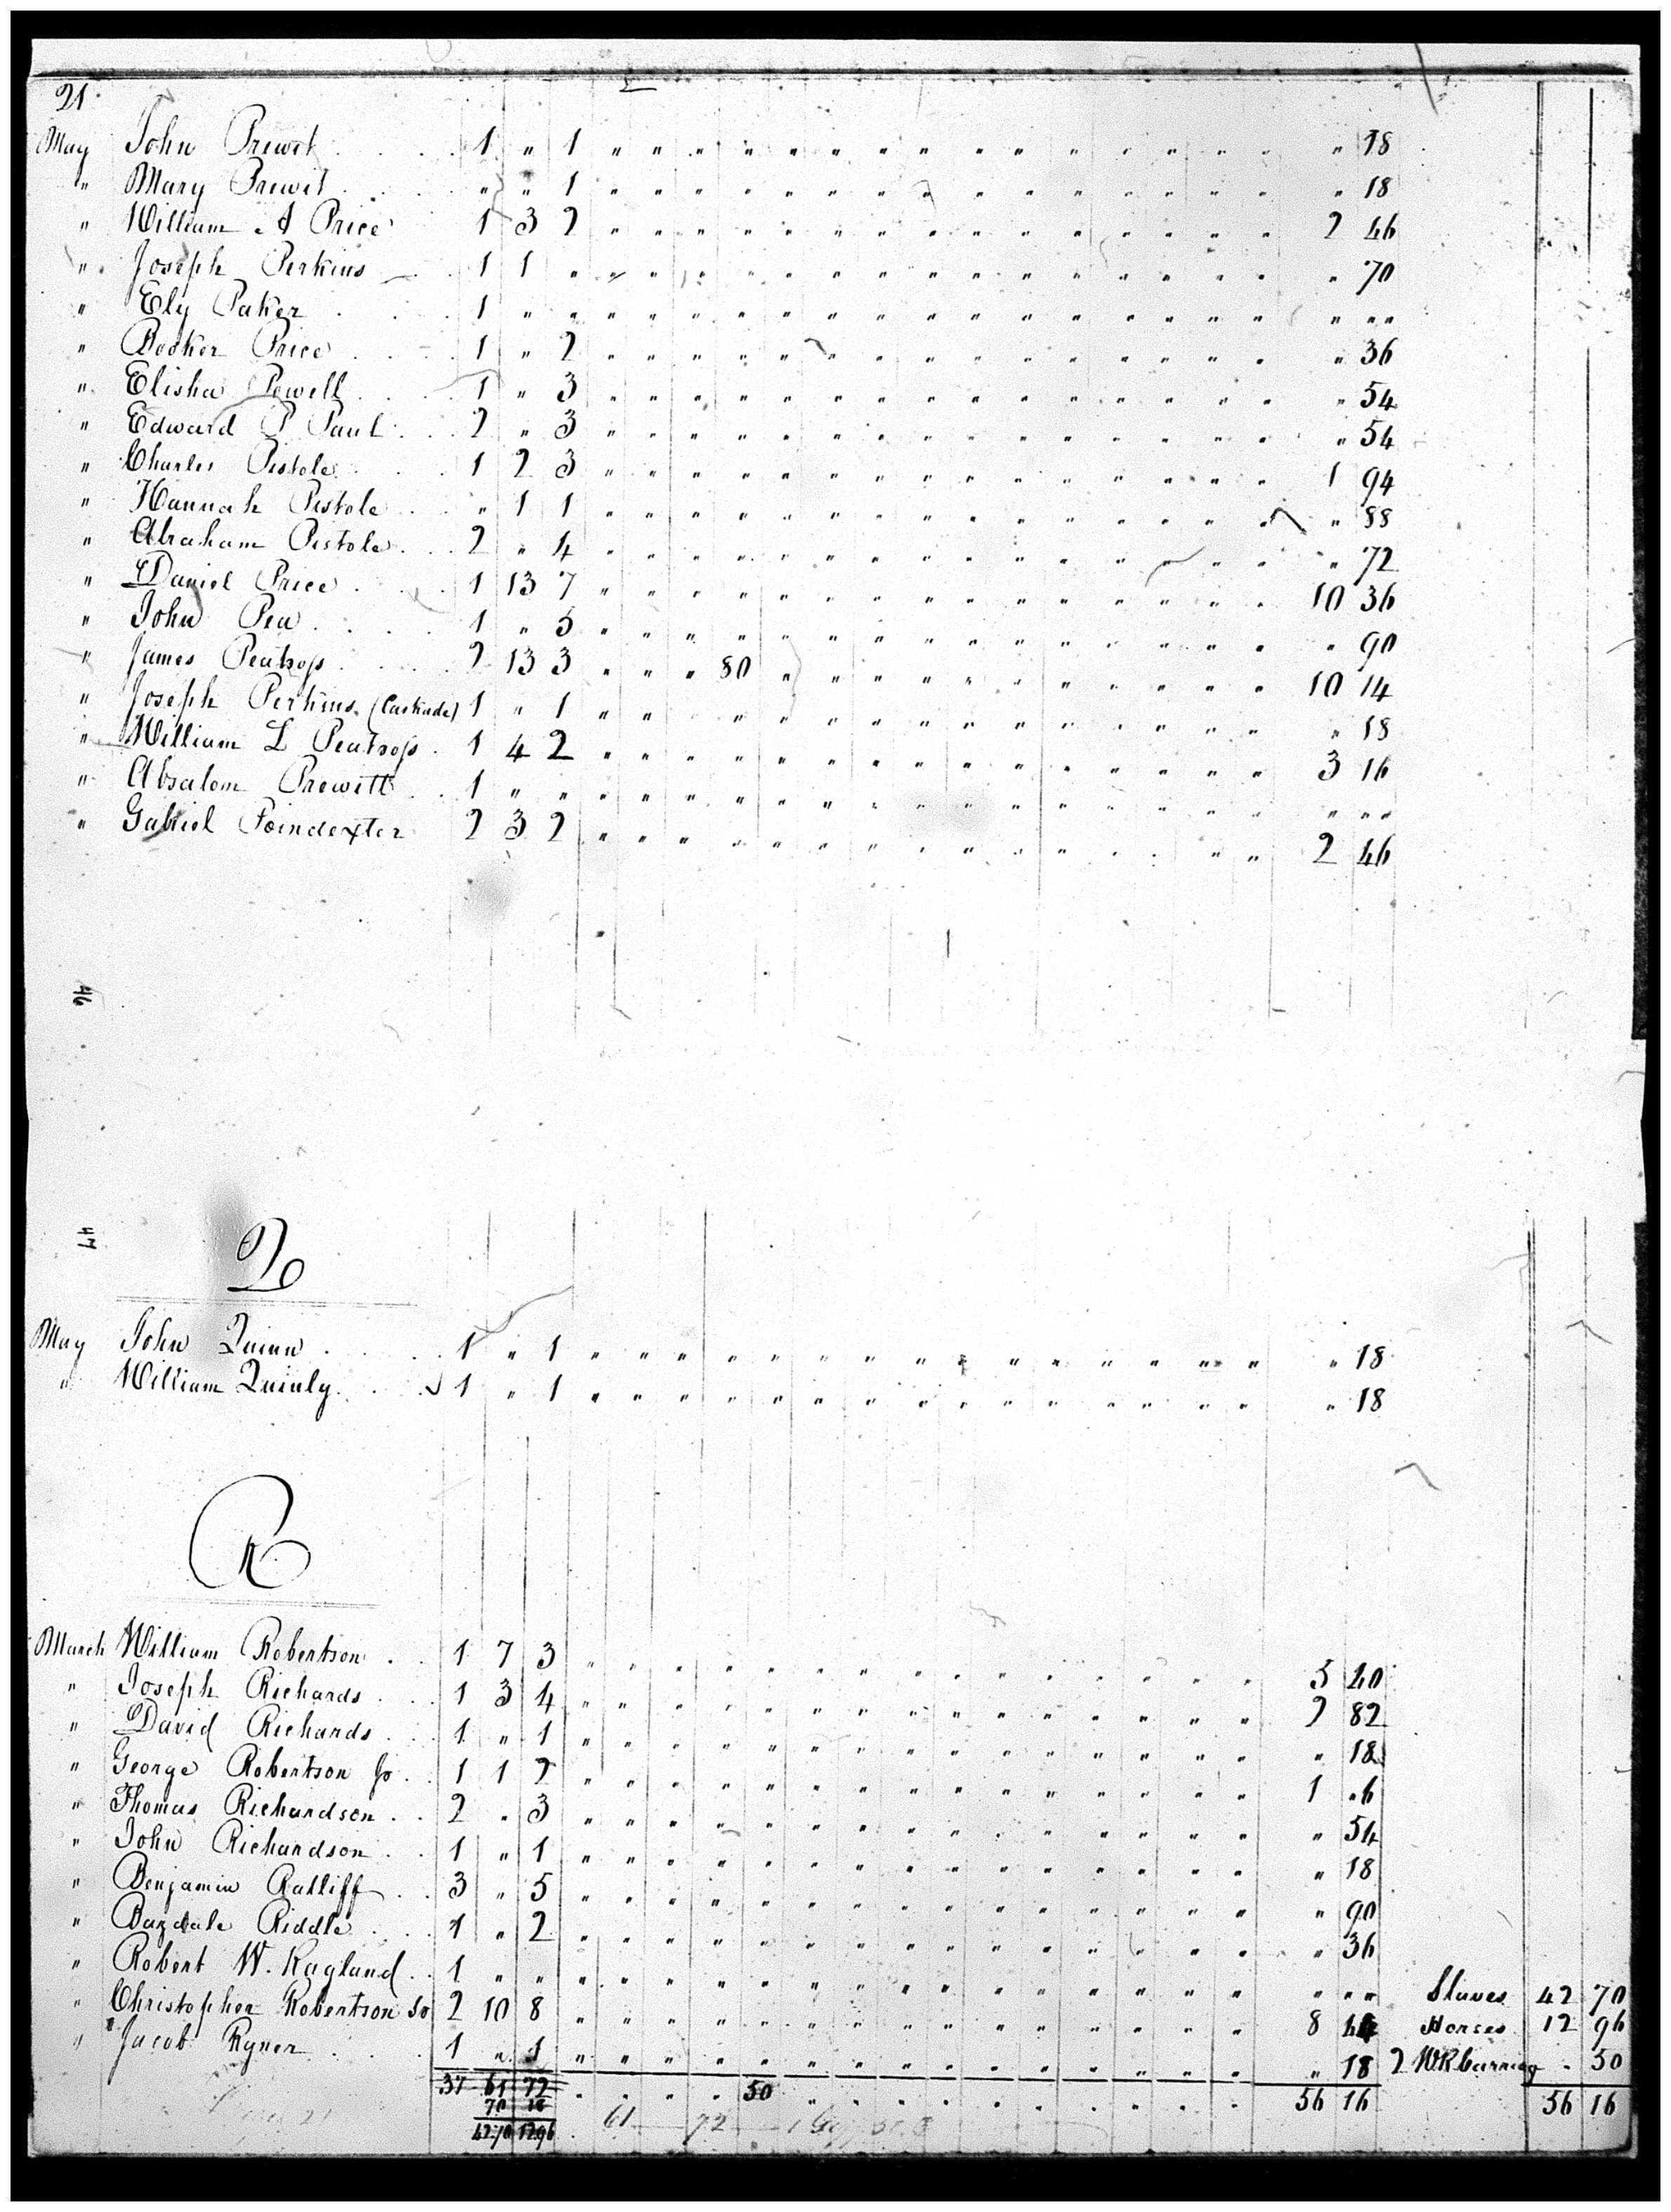 21
May John Prewit 1 " 1 " " " " " " " " " " " " " " " " 18
" Mary Prewit " " 1 " " " " " " " " " " " " " " " " 18
" William A Price 1 3 2 " " " " " " " " " " " " " " " 2 46
" Joseph Perkins 1 1 " " " " " " " " " " " " " " " " " 70
" Ely Paker 1 " " " " " " " " " " " " " " " " " " " "
" Booker Price 1 " 2 " " " " " " " " " " " " " " " " 36
" Elisha Powell 1 " 3 " " " " " " " " " " " " " " " " 54
" Edward P Paul 2 " 3 " " " " " " " " " " " " " " " " 54
" Charles Pistole 1 2 3 " " " " " " " " " " " " " " " 1 94
" Hannah Pistole " 1 1 " " " " " " " " " " " " " " " " 88
" Abraham Pistole 2 " 4 " " " " " " " " " " " " " " " " 72
" Daniel Price 1 13 7 " " " " " " " " " " " " " " " 10 36
" John Pea 1 " 5 " " " " " " " " " " " " " " " " 90
" James Peatrop 2 13 3 " " " 50 " " " " " " " " " " " 10 14
" Joseph Perkins (Caskade) 1 " 1 " " " " " " " " " " " " " " " " 18
" William L Peatrop 1 4 2 " " " " " " " " " " " " " " " 3 16
" Absalom Prewitt 1 " " " " " " " " " " " " " " " " " " " "
" Gabriel Poindexter 2 3 2 " " " " " " " " " " " " " " " 2 46
46
47
Q
May John Quinn 1 " 1 " " " " " " " " " " " " " " " " 18
" William Quinly 1 " 1 " " " " " " " " " " " " " " " " 18
R
March William Robertson 1 7 3 " " " " " " " " " " " " " " " 5 40
" Joseph Richards 1 3 4 " " " " " " " " " " " " " " " 2 82
" David Richards 1 " 1 " " " " " " " " " " " " " " " " 18
" George Robertson Jr 1 1 2 " " " " " " " " " " " " " " " 1 "6
" Thomas Richardson 2 " 3 " " " " " " " " " " " " " " " " 54
" John Richardson 1 " 1 " " " " " " " " " " " " " " " " 18
" Benjamin Ratliff 3 " 5 " " " " " " " " " " " " " " " " 90
" Bazdale Riddle 1 " 2 " " " " " " " " " " " " " " " " 36
" Robert W. Ragland 1 " " " " " " " " " " " " " " " " " " " " Slaves 42 70
" Christopher Robertson Sr 2 10 8 " " " " " " " " " " " " " " " 8 44 Horses 12 96
" Jacob Ryner 1 " 1 " " " " " " " " " " " " " " " " 18 2 W R Carriag " 50
37 61 72 " " " " 50 " " " " " " " " " " 56 16 56 16
70 18
42.70 12.96 61 72